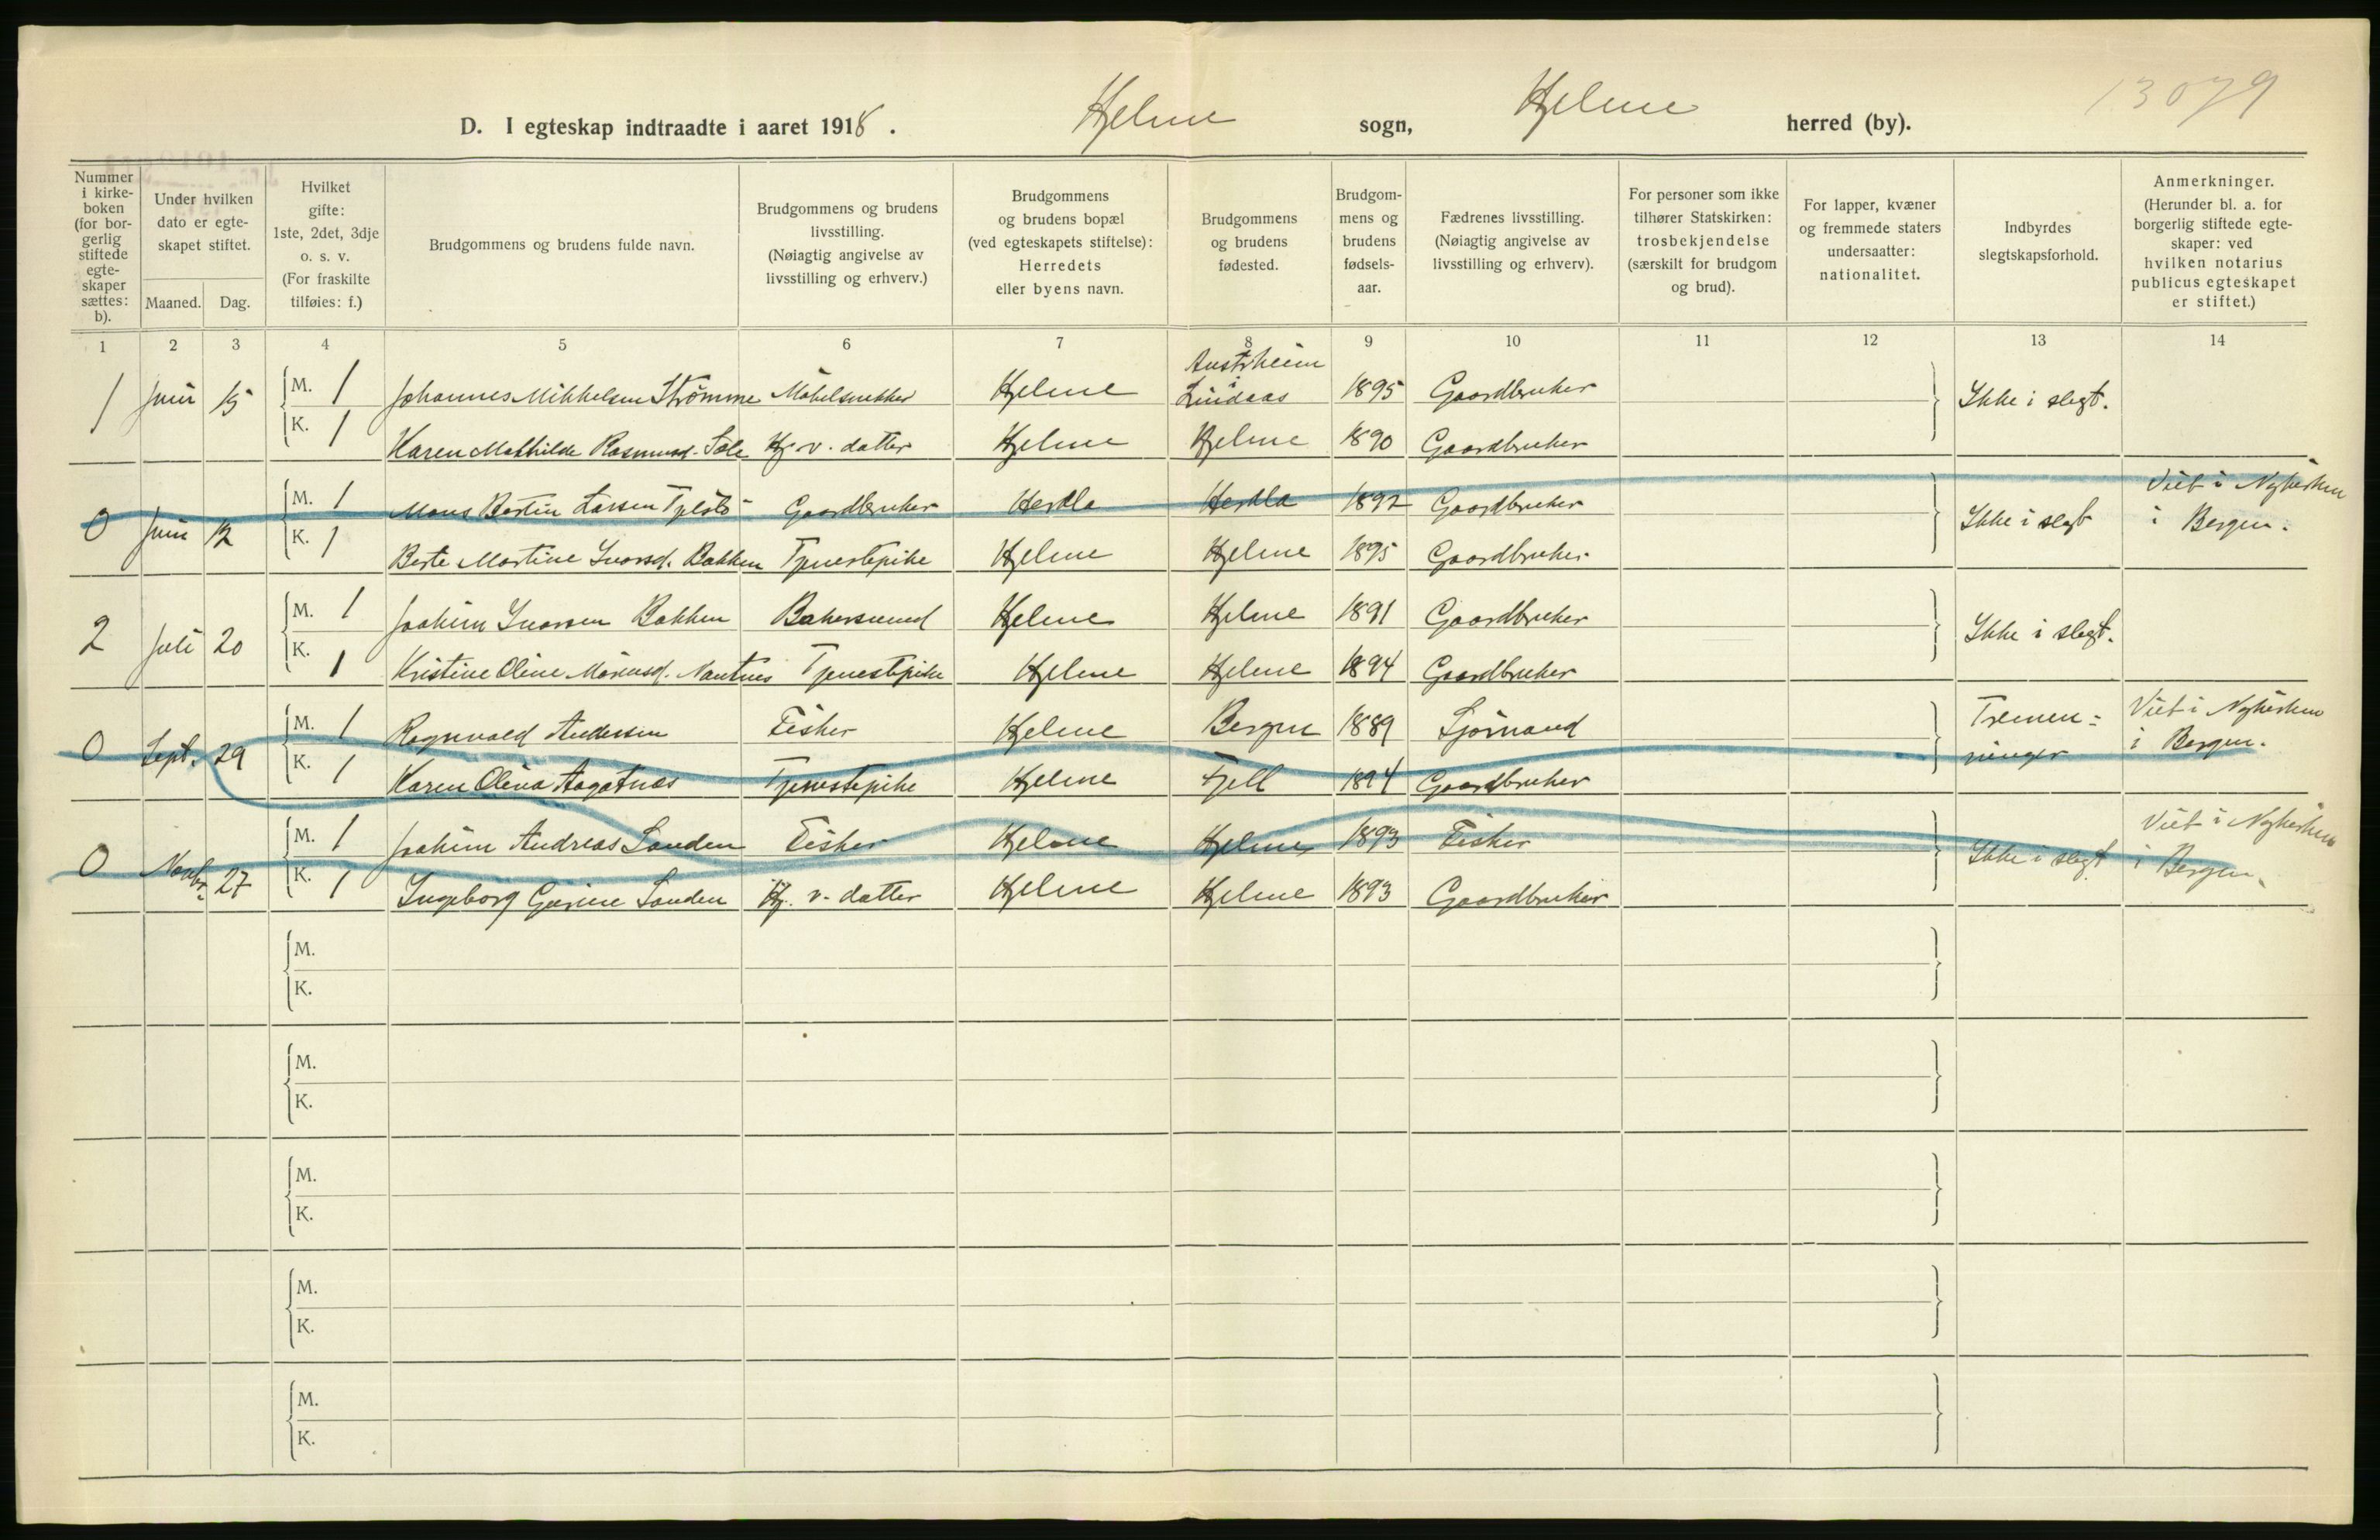 13079
D. I egteskap indtraadte i aaret 1918. Hjelme sogn, Hjelme herred (by).
Nummer i kirkeboken (for borgerlig stiftede egteskaper sættes: b).
Under hvilken dato er egteskapet stiftet.
Maaned. Dag.
Hvilket gifte: 1ste, 2det, 3dje o. s. v. (For fraskilte tilføies: f.)
Brudgommens og brudens fulde navn.
Brudgommens og brudens livsstilling. (Nøiagtig angivelse av livsstilling og erhverv.)
Brudgommens og brudens bopæl (ved egteskapets stiftelse): Herredets eller byens navn.
Brudgommens og brudens fødested.
Brudgommens og brudens fødselsaar.
Fædrenes livsstilling. (Nøiagtig angivelse av livsstilling og erhverv).
For personer som ikke tilhører Statskirken: trosbekjendelse (særskilt for brudgom og brud).
For lapper, kvæner og fremmede staters undersaatter: nationalitet.
Indbyrdes slegtskapsforhold.
Anmerkninger. (Herunder bl. a. for borgerlig stiftede egteskaper: ved hvilken notarius publicus egteskapet er stiftet.)
1 2 3 4 5 6 7 8 9 10 11 12 13 14
1 Juni 15 M. 1 Johannes Mikkelsen Strømme Møbelsnekker Hjelme Austrheim i Lindaas 1895 Gaardbruker Ikke i slegt.
K. 1 Karen Mathilde Rasmusd. Sæle Hj. v. datter Hjelme Hjelme 1890 Gaardbruker
0 Juni 12 M. 1 Mons Bertin Larsen Gaardbruker Herdla Herdla 1892 Gaardbruker Ikke i slegt Viet i Nykirken i Bergen.
K. 1 Berte Martine Ivarsd. Bakken Tjenestepike Hjelme Hjelme 1895 Gaardbruker
2 Juli 20 M. 1 Joakim Ivarsen Bakken Bakersvend Hjelme Hjelme 1891 Gaardbruker Ikke i slegt.
K. 1 Kristine Oline Monsd. Nautnes Tjenestepike Hjelme Hjelme 1894 Gaardbruker
0 Sept. 29 M. 1 Ragnvald Andersen Fisker Hjelme Bergen 1889 Sjömand Tremenninger Viet i Nykirken i Bergen.
K. 1 Karen Olina Aagotnes Tjenestepike Hjelme Fjell 1894 Gaardbruker
0 Novbr. 27 M. 1 Joakim Andreas Sanden Fisker Hjelme Hjelme 1893 Fisker Ikke i slegt Viet i Nykirken i Bergen.
K. 1 Ingeborg Gurine Sanden Hj. v. datter Hjelme Hjelme 1893 Gaardbruker
M.
K.
M.
K.
M.
K.
M.
K.
M.
K.